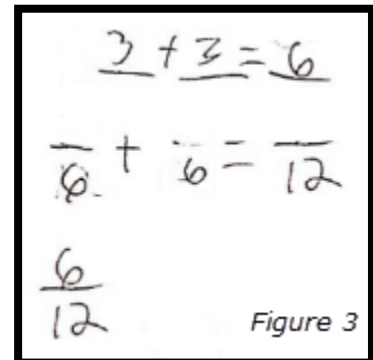 3 + 3 = 6
6 + 6 = 12
6
12
Figure 3